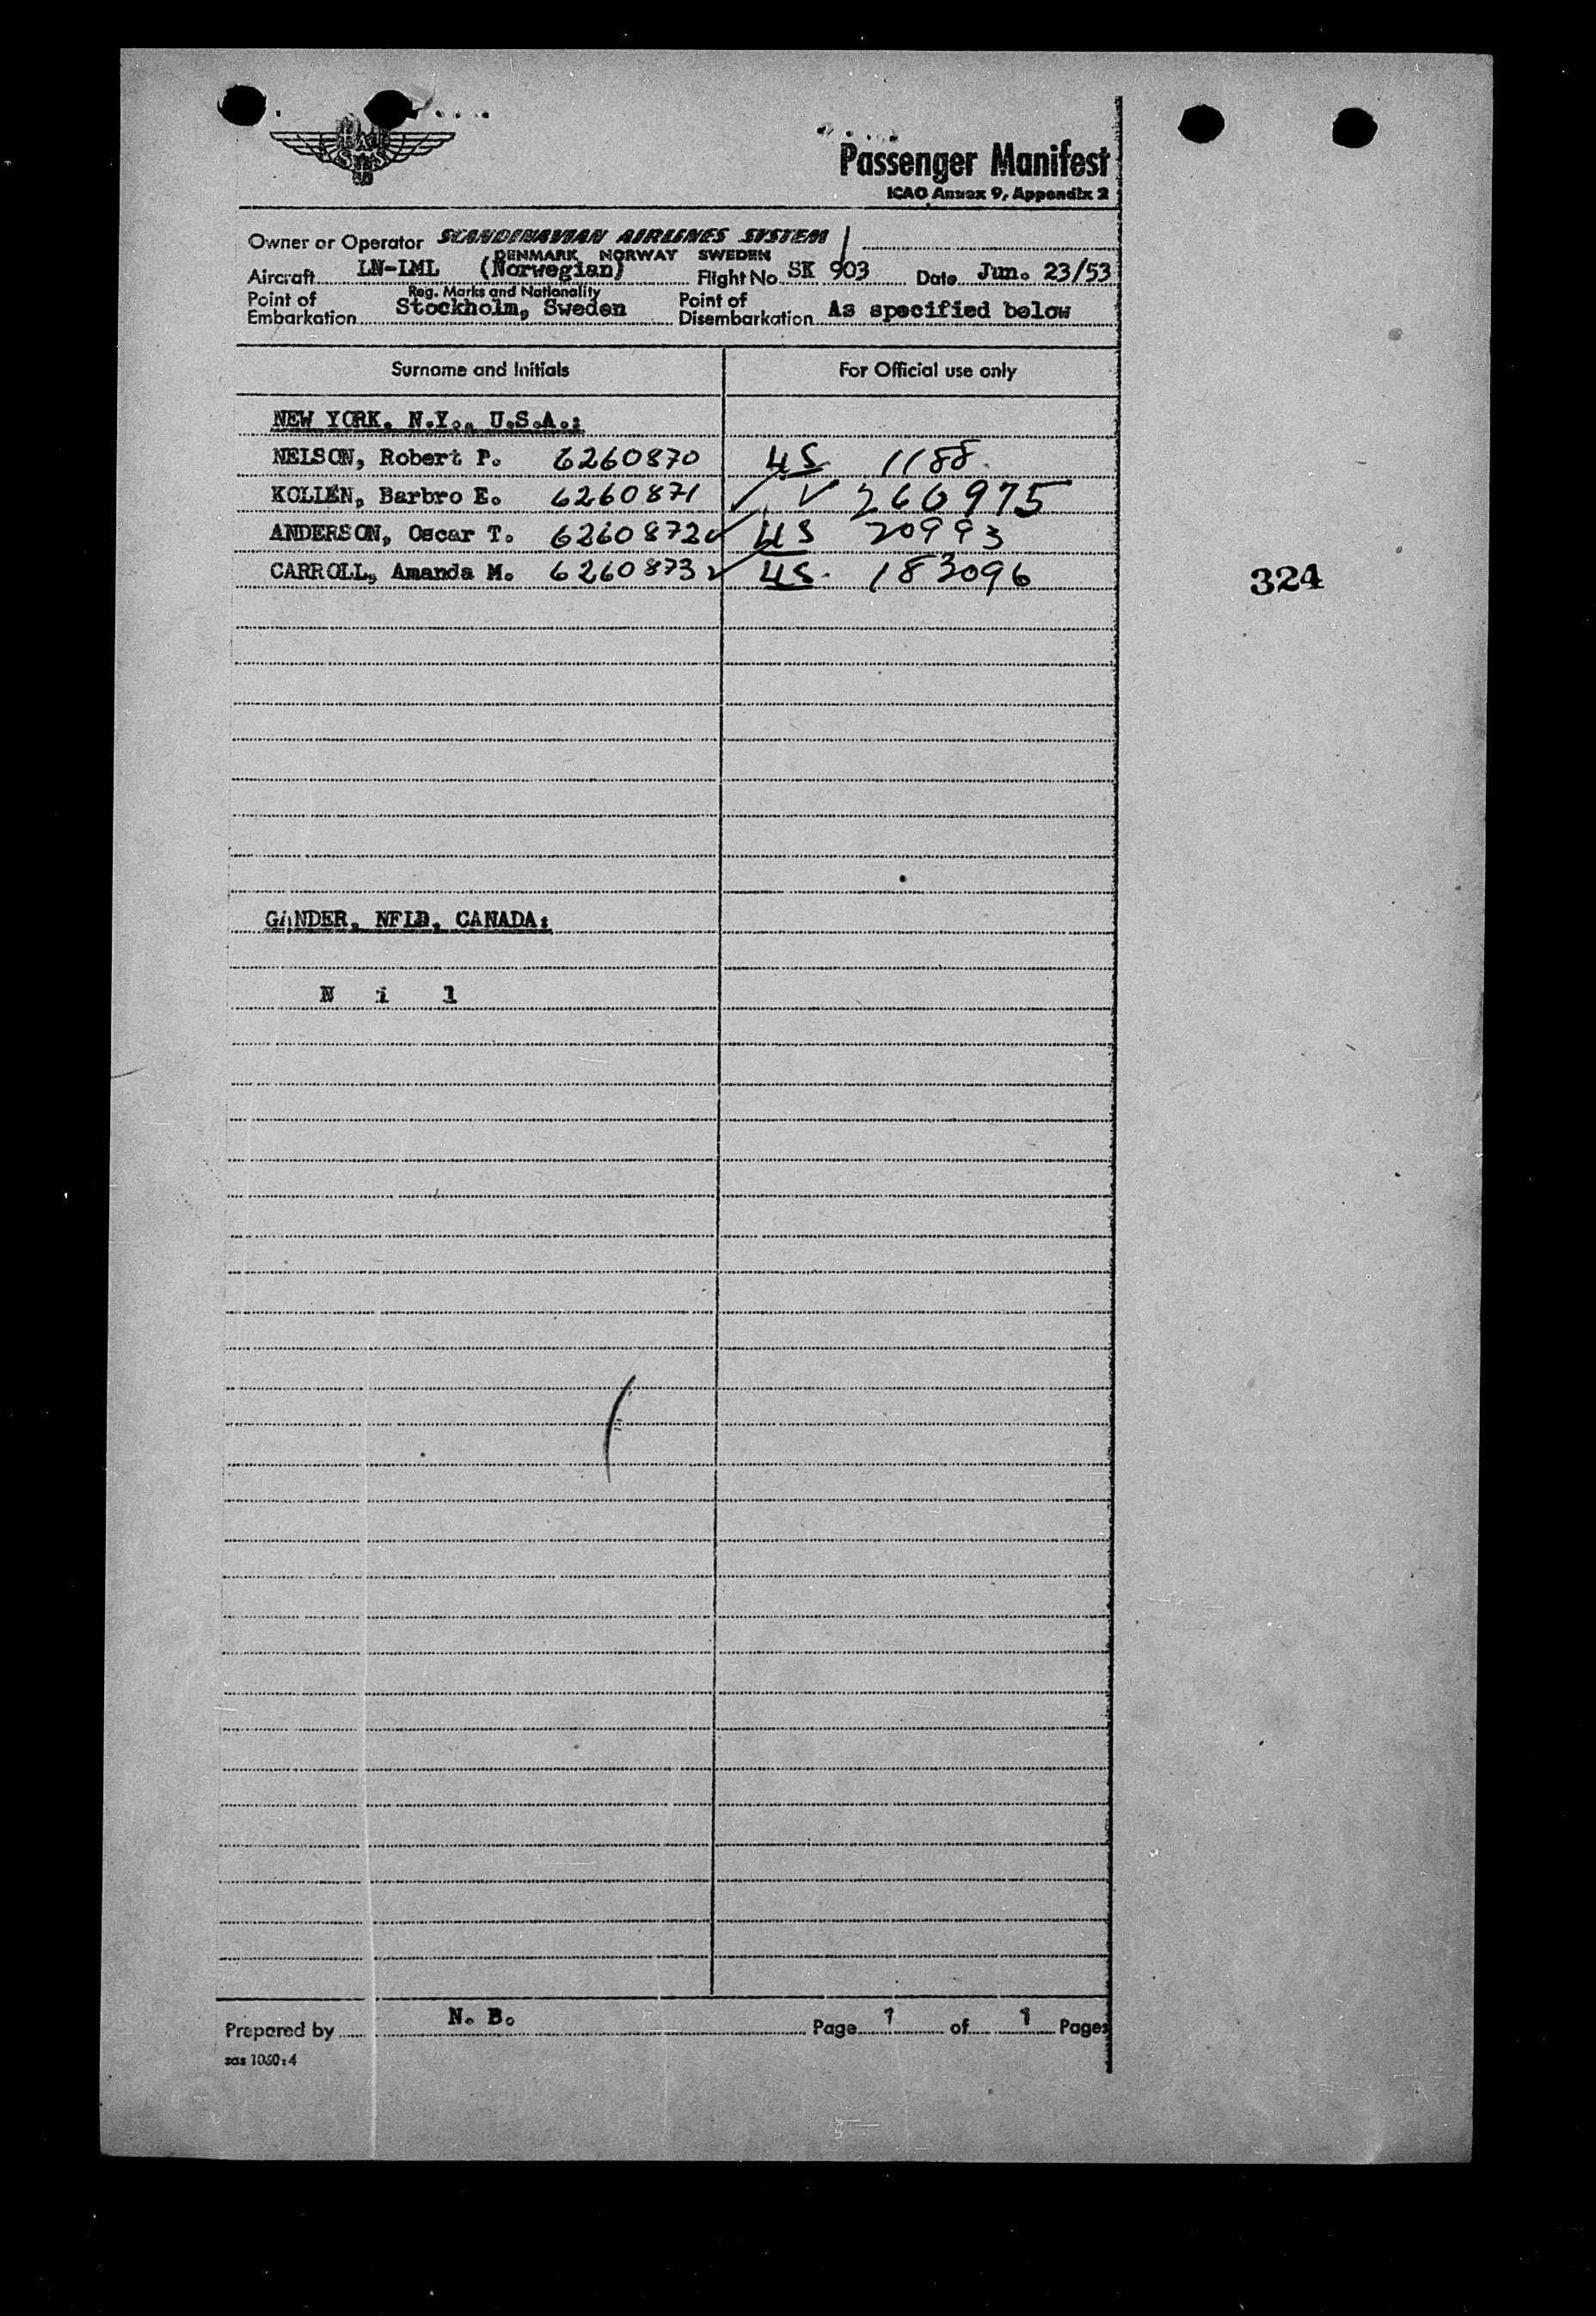 SAS
Passenger Manifest
ICAO Annex 9, Appendix 2
Owner or Operator SCANDINAVIAN AIRLINES SYSTEM
DENMARK NORWAY SWEDEN
Aircraft LN-LML (Norwegian) Flight No. SK 903 Date Jun. 23/53
Reg. Marks and Nationality
Point of Embarkation Stockholm, Sweden Point of Disembarkation As specified below
Surname and Initials For Official use only
NEW YORK, N.Y., U.S.A.:
NELSON, Robert P. 6260870 US 1188
KOLLÉN, Barbro E. 6260871 ✓ V 260975
ANDERSON, Oscar T. 6260872 ✓ US 20993
CARROLL, Amanda M. 6260873 ✓ US. 183096
324
GANDER, NFLD, CANADA:
N i l
Prepared by N. B. Page 1 of 1 Pages
sas 1060:4